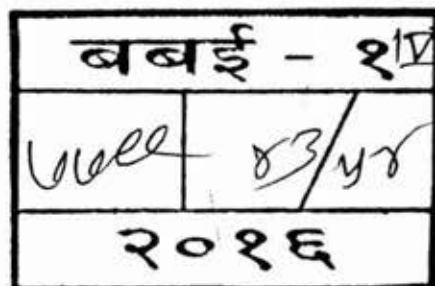 बबई - १ IV
७७८९ ४३/५४
२०१६